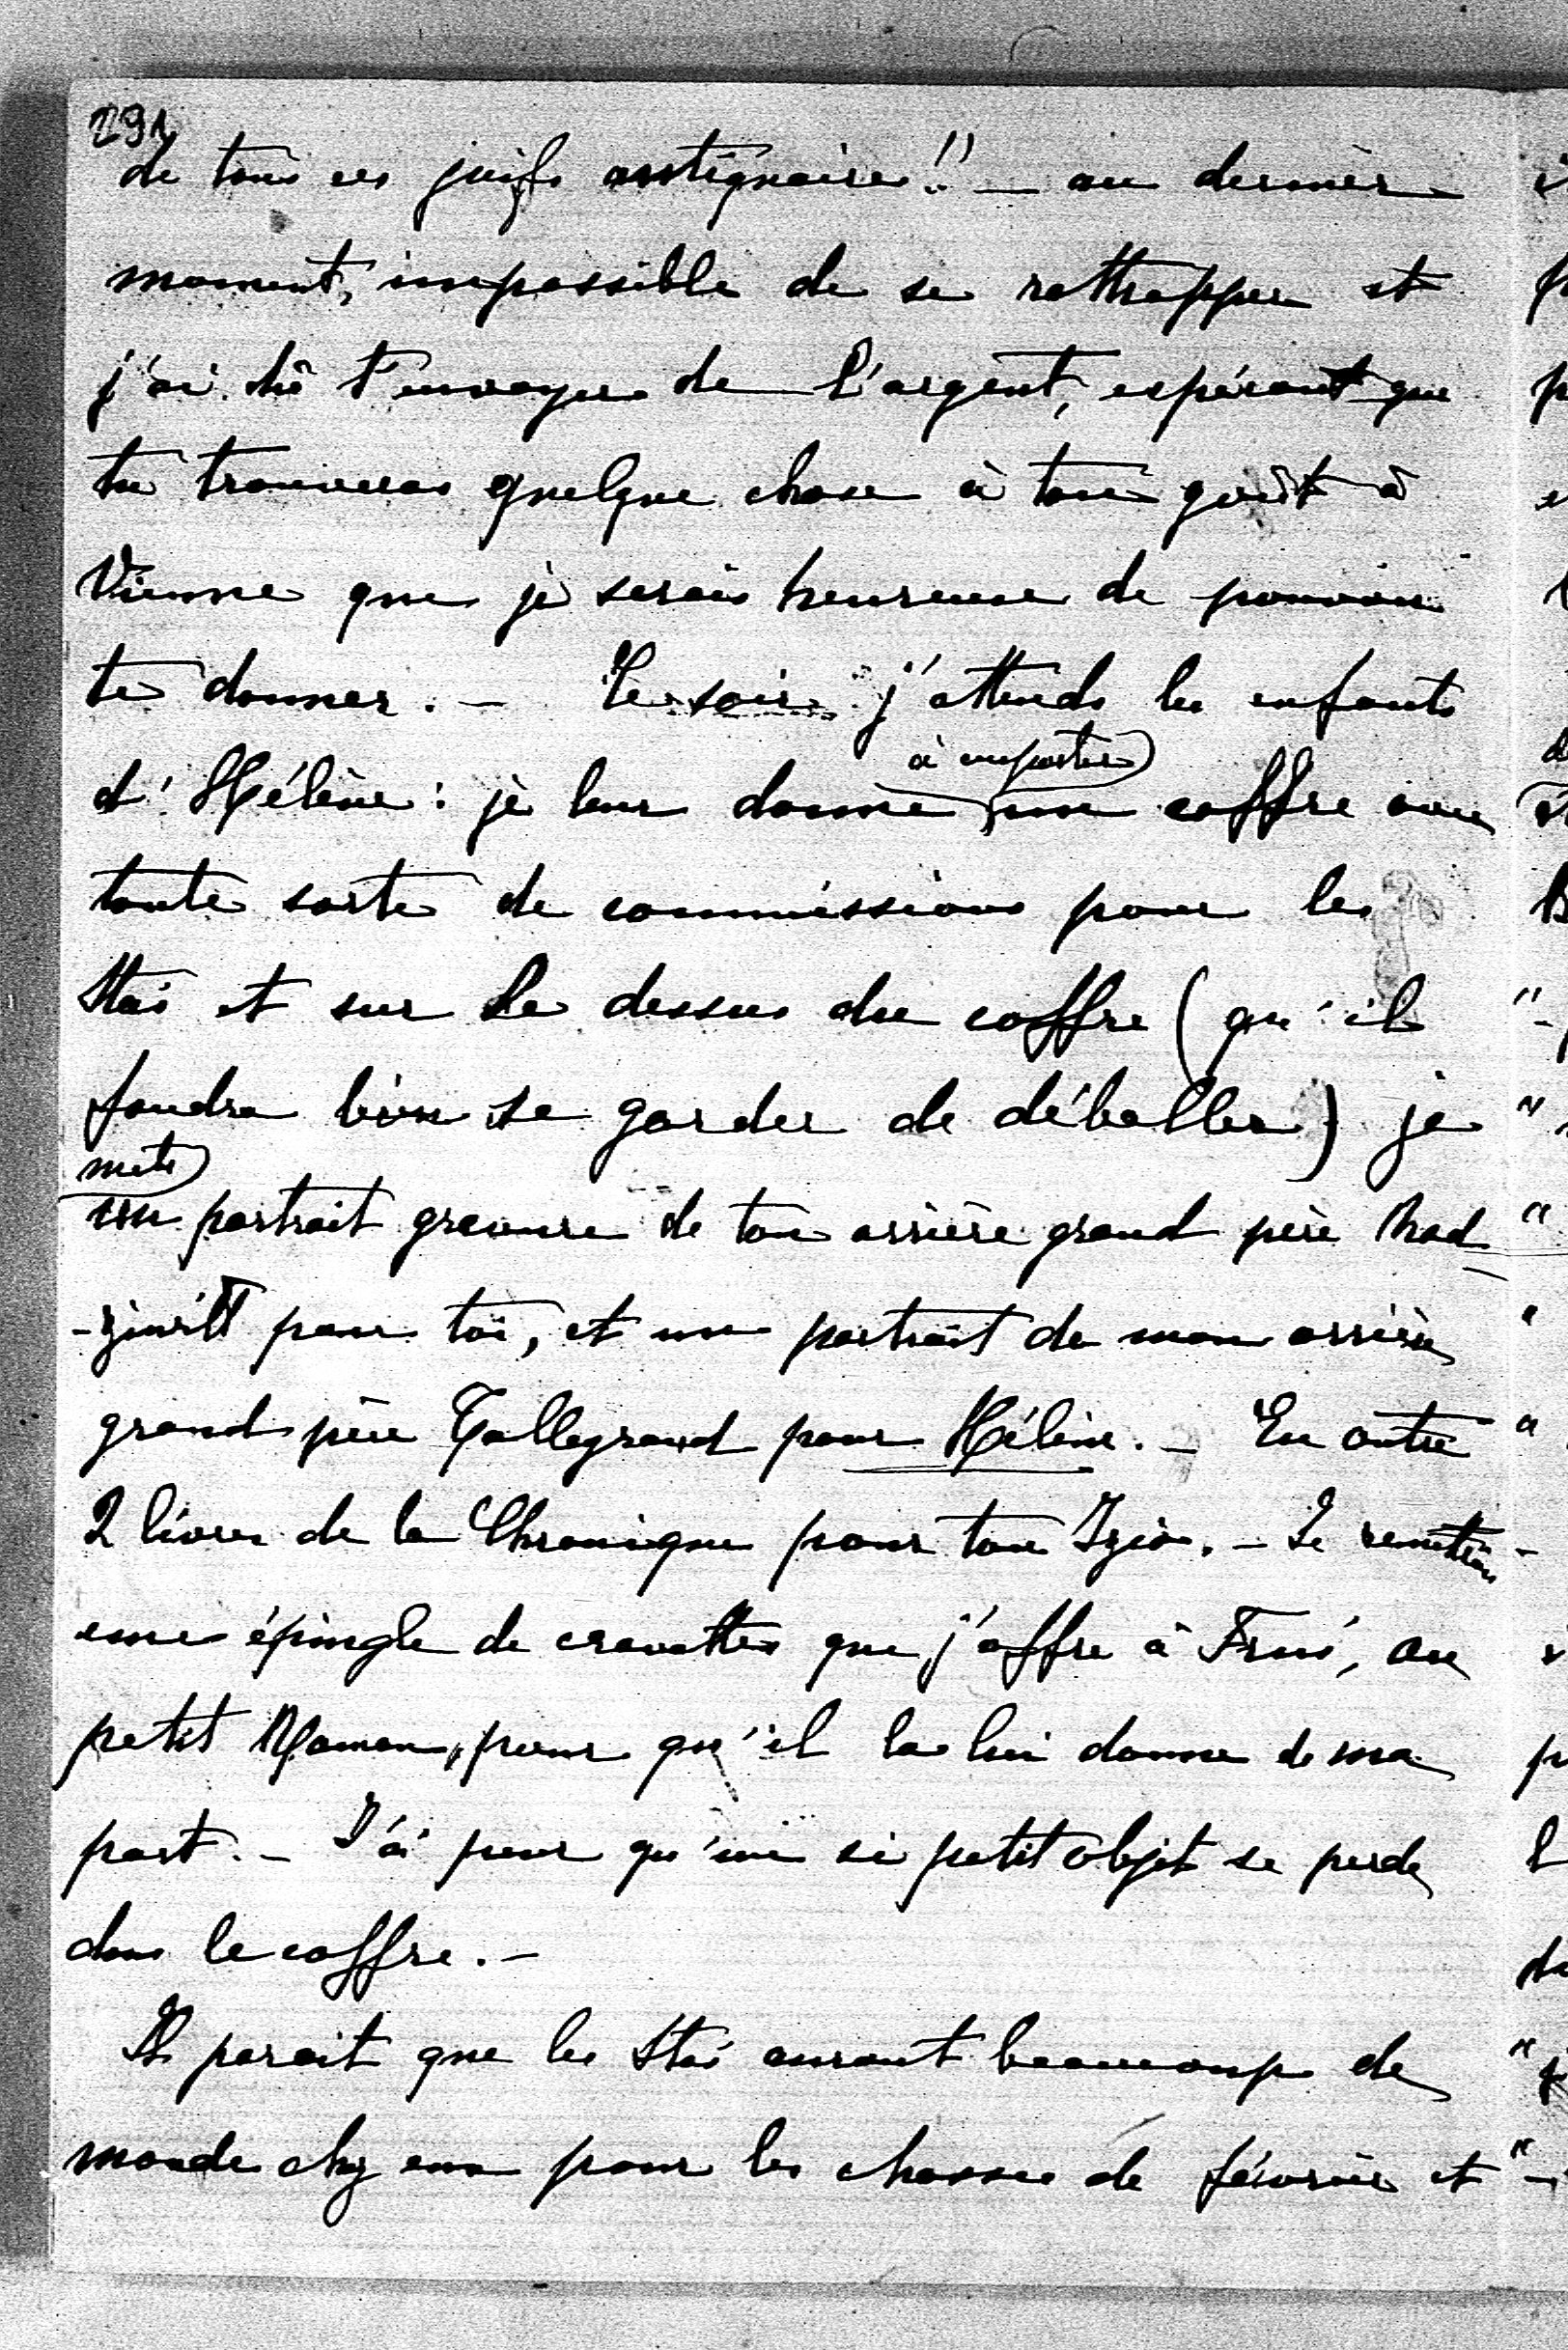 291
de tous ces juifs antiquaires!! — au dernier
moment, impossible de se rattrapper et
j'ai dû t'envoyer de l'argent, espérant que
tu trouveras quelque chose à ton goût à
Vienne que je serais heureuse de pouvoir
te donner. — Ce soir j'attends les enfants
d'Hélène: je leur donne à emporter un coffre avec
toute sorte de commissions pour les
Stas et sur le dessus du coffre (qu'il
faudra bien se garder de déballer) je
mets
un portrait gravure de ton arrière grand père Rad
-ziwill pour toi, et un portrait de mon arrière
grand père Talleyrand pour Hélène. — En outre
2 livres de la Chronique pour ton Izio. — Je remettrai
une épingle de cravatte que j'offre à , au
petit Roman, pour qu'il la lui donne de ma
part. — J'ai peur qu'un si petit objet se perde
dans le coffre. —
Il parait que les Stas auront beaucoup de
monde chez eux pour les chasses de février et